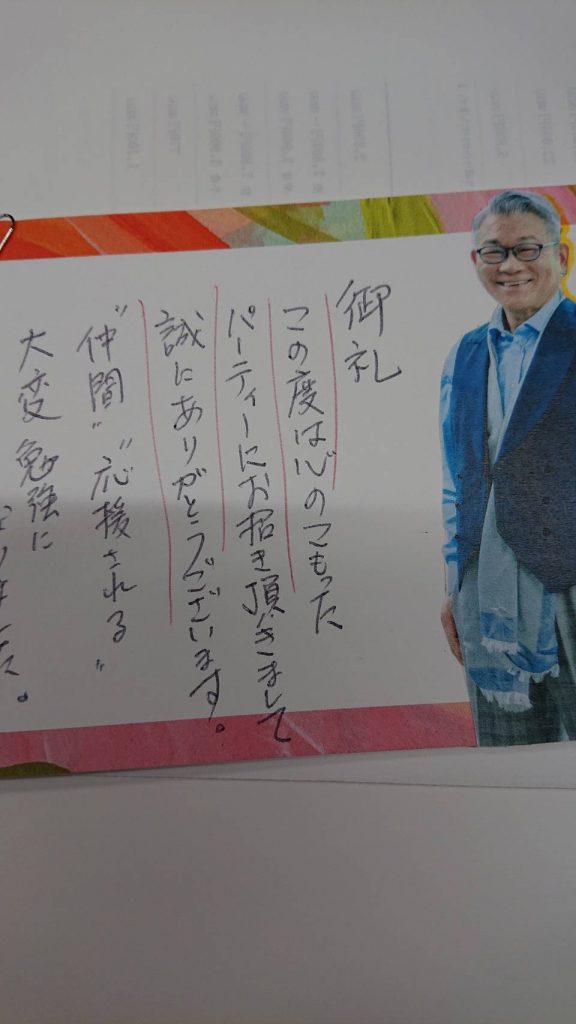 御礼
この度は心のこもった
パーティーにお招き頂きまして
誠にありがとうございます。
"仲間" "応援される"
大変勉強に
なりました。